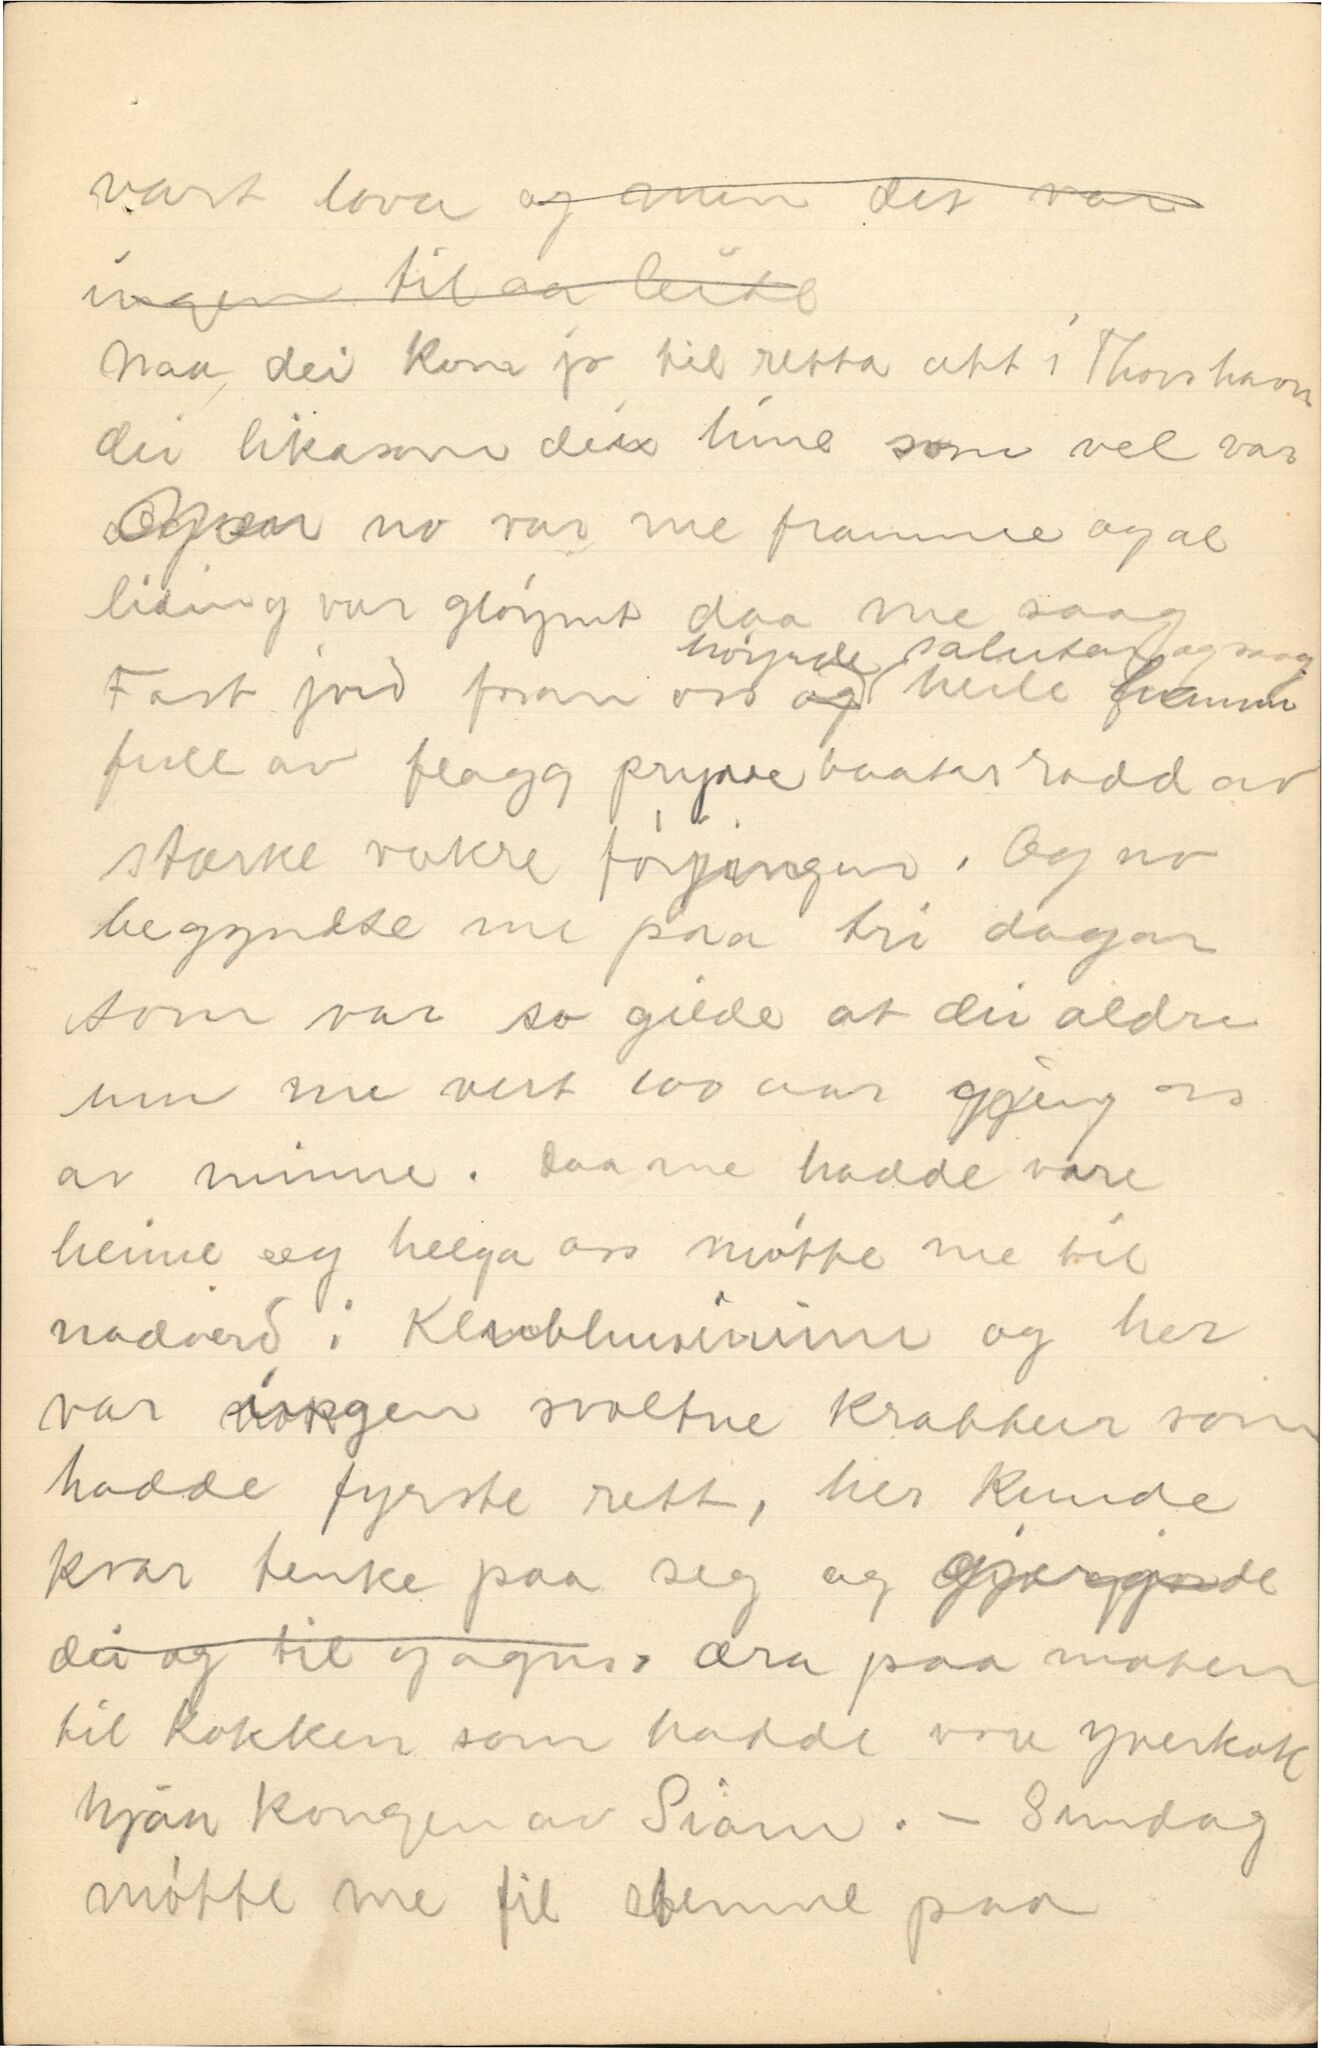 vart lova og men det var
ingen til aa leite
Naa, dei kom jo til retta att i Thorshavn
dei likasom dei hine som vel var
Og no var me framme og al
liding var gløymt daa me saag
høyrde salutar og saag
Fast jord fram oss og heile
full av flagg prydde baatar rodd av
stærke vakre føryingar. Og no
begyndte me paa tri dagar
som var so gilde at dei aldri
um me vert 100 aar gjeng oss
av minne. Daa me hadde vore
heime og helga oss møtte me til
nadverd i Klubhusinum og her
var ingen svoltne krabbeir som
hadde fyrste rett, her kunde
kvar tenke paa seg og
dei og til gagns. æra paa maten
til kokken som hadde vore yverkok
hjaa kongen av Siam. – Sundag
møtte me til stemne paa